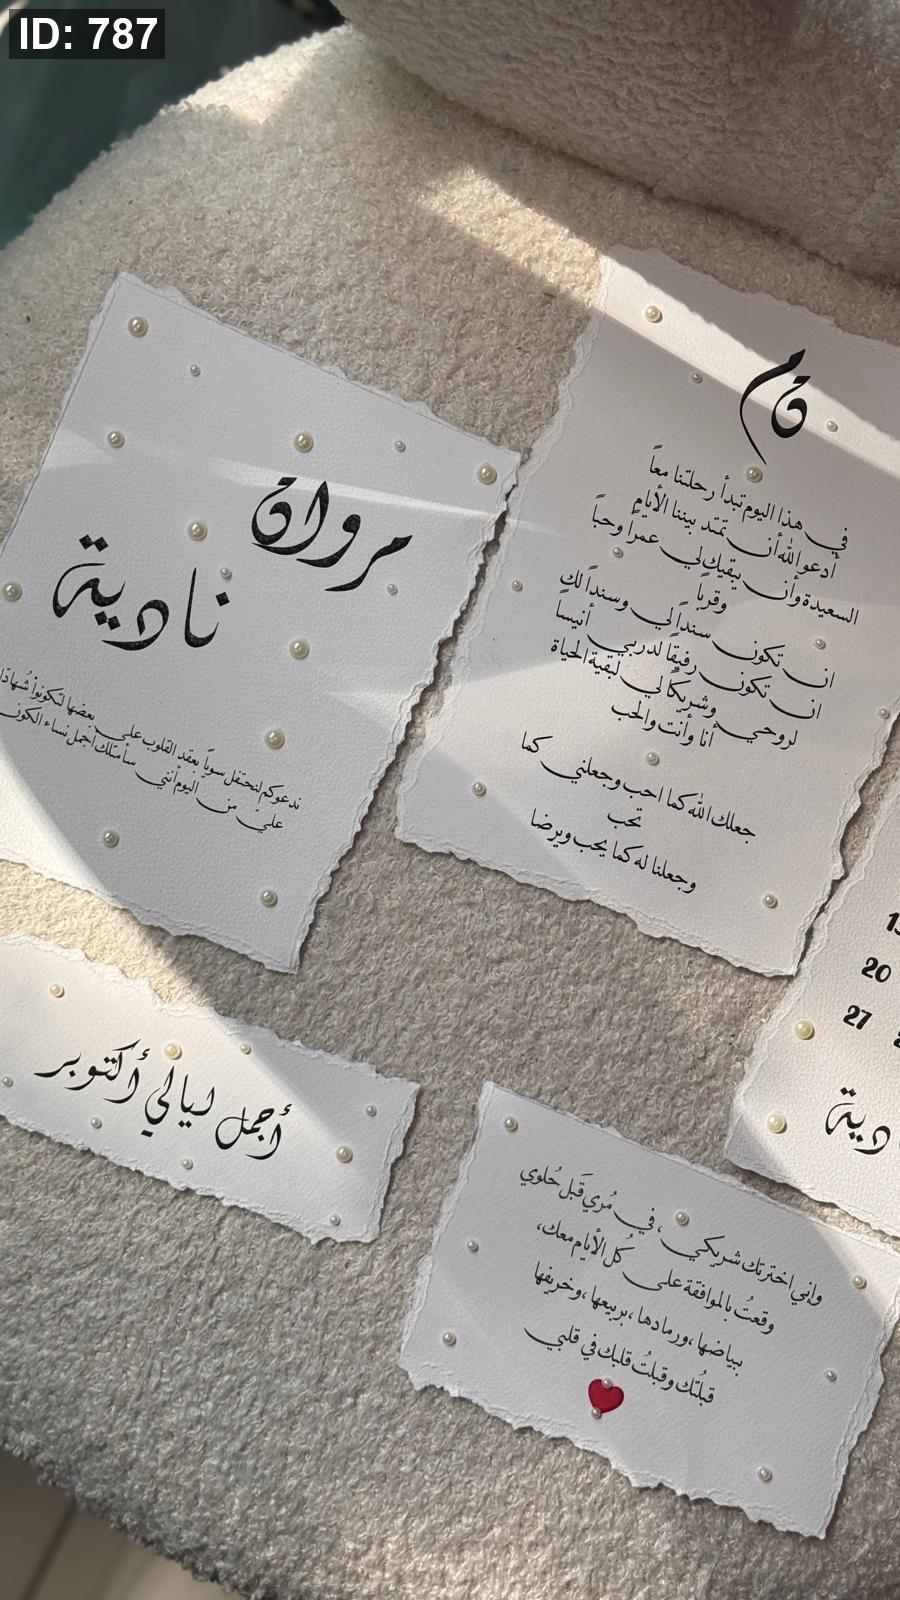 ID: 787
مروان
نادية
ندعوكم لنحتفل سوياً بعقد القلوب على بعضها لتكونوا شُهادًا
عليّ من اليوم أنني سأمتلك اجمل نساء الكون
في هذا اليوم تبدأ رحلتنا معاً
أدعو الله أن تمتد بيننا الأيام
السعيدة وأن يبقيك لي عمراً وحباً
وقرباً
ان تكون سنداً لي وسنداً لك
ان تكون رفيقاً لدربي أنيساً
لروحي وشريكاً لي لبقية الحياة
أنا وأنت والحب
جعلك الله كما احب وجعلني كما
تحب
وجعلنا له كما يحب ويرضا
20
27
نادية
أجمل ليالي أكتوبر
وإني اخترتك شريكي، في مُري قَبل حُلوي
وقعتُ بالموافقة على كُل الأيام معك،
ببياضها، ورمادها، بربيعها، وخريفها
قبلتُك وقبلتُ قلبك في قلبي